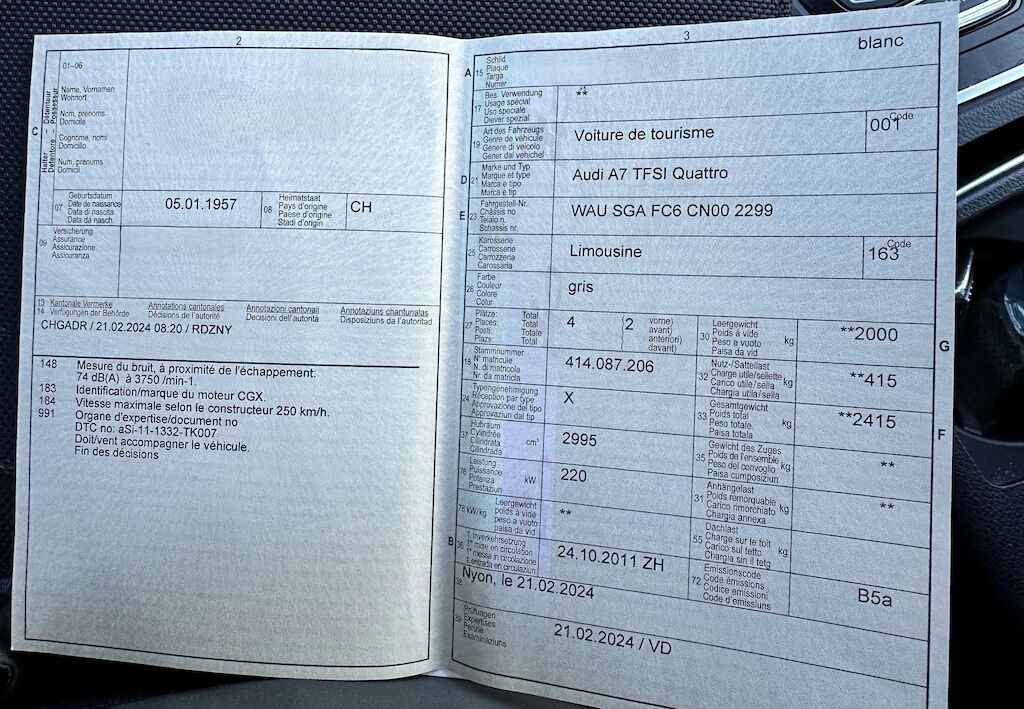 2
01–06
Name, Vornamen
Wohnort
Nom, prénoms
Domicile
Cognome, nomi
Domicilio
Num, prenums
Domicil
C
Halter – Détenteur
Detentore – Possessur
07
Geburtsdatum
Date de naissance
Data di nascita
Data da nasch.
05.01.1957
08
Heimatstaat
Pays d'origine
Paese d'origine
Stadi d'origin
CH
09
Versicherung
Assurance
Assicurazione
Assicuranza
13 Kantonale Vermerke
14 Verfügungen der Behörde
Annotations cantonales
Décisions de l'autorité
Annotazioni cantonali
Decisioni dell'autorità
Annotaziuns chantunalas
Disposiziuns da l'autoritad
CHGADR / 21.02.2024 08:20 / RDZNY
148 Mesure du bruit, à proximité de l'échappement:
74 dB(A) à 3750 /min-1.
183 Identification/marque du moteur CGX.
184 Vitesse maximale selon le constructeur 250 km/h.
991 Organe d'expertise/document no
DTC no: aSi-11-1332-TK007
Doit/vent accompagner le véhicule.
Fin des décisions
3
A 15
Schild
Plaque
Targa
Numer
blanc
17
Bes. Verwendung
Usage spécial
Uso speciale
Diever spezial
**
19
Art des Fahrzeugs
Genre de véhicule
Genere di veicolo
Gener dal vehichel
Voiture de tourisme
Code
001
D 21
Marke und Typ
Marque et type
Marca e tipo
Marca e tip
Audi A7 TFSI Quattro
E 23
Fahrgestell-Nr.
Châssis no
Telaio n.
Schassis nr.
WAU SGA FC6 CN00 2299
25
Karosserie
Carrosserie
Carrozzeria
Carossaria
Limousine
Code
163
26
Farbe
Couleur
Colore
Colur
gris
27
Plätze: Total
Places: Total
Posti: Totale
Plazs: Total
4
2
vorne)
avant)
anteriori)
davant)
30
Leergewicht
Poids à vide
Peso a vuoto
Paisa da vid
kg
**2000
G
18
Stammnummer
N° matricule
N. di matricola
Nr. da matricla
414.087.206
32
Nutz-/Sattellast
Charge utile/sellette
Carico utile/sella
Chargia utila/sella
kg
**415
24
Typengenehmigung
Réception par type
Approvazione del tipo
Approvaziun dal tip
X
33
Gesamtgewicht
Poids total
Peso totale
Paisa totala
kg
**2415
F
37
Hubraum
Cylindrée
Cilindrata
Cilindrada
cm³
2995
35
Gewicht des Zuges
Poids de l'ensemble
Peso del convoglio
Paisa cumposiziun
kg
**
76
Leistung
Puissance
Potenza
Prestaziun
kW
220
31
Anhängelast
Poids remorquable
Carico rimorchiato
Chargia annexa
kg
**
78 kW/kg
Leergewicht
poids à vide
peso a vuoto
paisa da vid
**
55
Dachlast
Charge sur le toit
Carico sul tetto
Chargia sin il tetg
kg
B 36
1. Inverkehrsetzung
1re mise en circulation
1a messa in circolazione
1. entrada en circulaziun
24.10.2011 ZH
72
Emissionscode
Code émissions
Codice emissioni
Code d'emissiuns
B5a
38
Nyon, le 21.02.2024
39
Prüfungen
Expertises
Perizie
Examinaziuns
21.02.2024 / VD